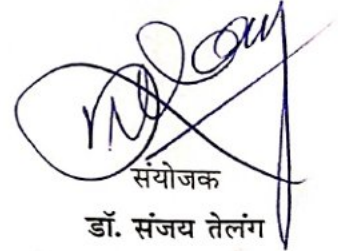 संयोजक
डॉ. संजय तेलंग